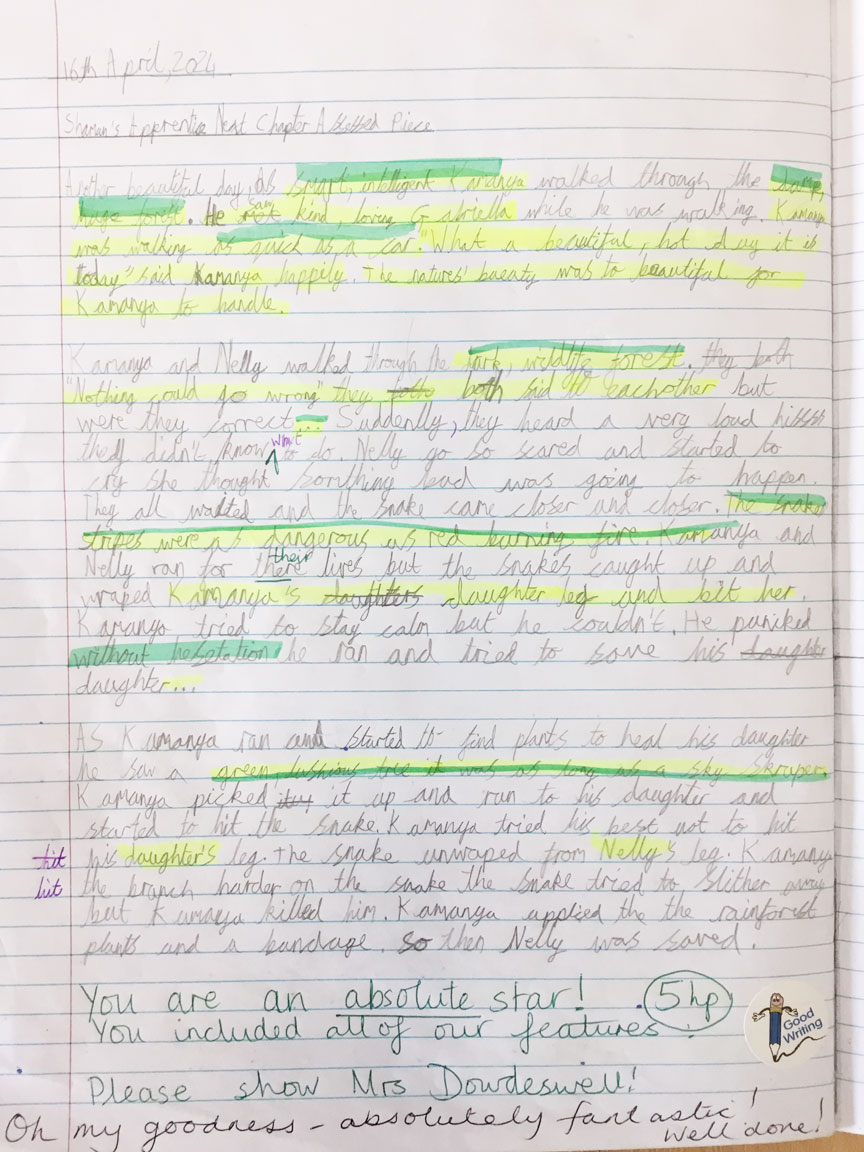 16th April, 2024
Shaman's Apprentice Next Chapter Assessed Piece
Another beautiful day, as smart, intelligent Kamanya walked through the
huge forest. He saw kind, loving Gabriella while he was walking. Kamanya
was walking as quick as a car. "What a beautiful, hot day it is
today" said Kamanya happily. The natures' bueaty was to beautiful for
Kamanya to handle.
Kamanya and Nelly walked through the dark, wildlife forest. they both
"Nothing could go wrong" they both said to eachother but
were they correct... Suddenly, they heard a very loud hisssh
they didn't know what to do. Nelly go so scared and started to
cry she thought somthing bad was going to happen.
They all waited and the snake came closer and closer. The snake
stripes were as dangerous as red burning fire. Kamanya and
Nelly ran for there their lives but the snakes caught up and
wraped Kamanya's daughters daughter leg and bit her.
Kamanya tried to stay calm but he couldn't. He paniked
without hesetation he ran and tried to save his daughter
daughter...
As Kamanya ran and started to find plants to heal his daughter
he saw a green, lushious tree it was as long as a sky skraper.
Kamanya picked it up and run to his daughter and
started to hit the snake. Kamanya tried his best not to hit
hit his daughter's leg. The snake unwraped from Nelly's leg. Kamanya
hit the branch harder on the snake the snake tried to slither away
but Kamanya killed him. Kamanya applied the the rainforest
plants and a bandage. so then Nelly was saved.
You are an absolute star! 5hp
You included all of our features!
Good Writing
Please show Mrs Dowdeswell!
Oh my goodness - absolutely fantastic!
Well done!